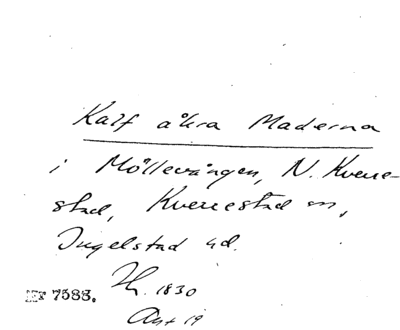 Kalfåkra Maderna
i Möllevången, N. Kverre-
stad, Kverrestad sn,
Ingelstad hd.
1830
Akt 19
7583.